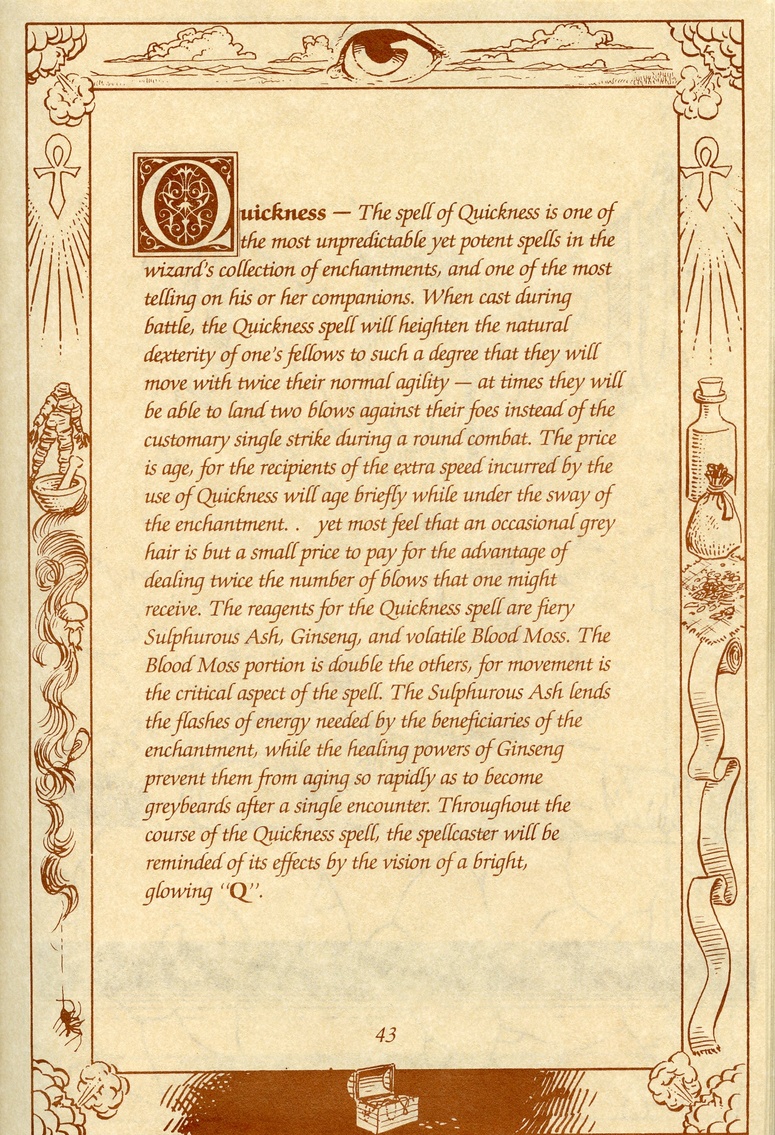 Quickness — The spell of Quickness is one of
the most unpredictable yet potent spells in the
wizard's collection of enchantments, and one of the most
telling on his or her companions. When cast during
battle, the Quickness spell will heighten the natural
dexterity of one's fellows to such a degree that they will
move with twice their normal agility — at times they will
be able to land two blows against their foes instead of the
customary single strike during a round combat. The price
is age, for the recipients of the extra speed incurred by the
use of Quickness will age briefly while under the sway of
the enchantment. . yet most feel that an occasional grey
hair is but a small price to pay for the advantage of
dealing twice the number of blows that one might
receive. The reagents for the Quickness spell are fiery
Sulphurous Ash, Ginseng, and volatile Blood Moss. The
Blood Moss portion is double the others, for movement is
the critical aspect of the spell. The Sulphurous Ash lends
the flashes of energy needed by the beneficiaries of the
enchantment, while the healing powers of Ginseng
prevent them from aging so rapidly as to become
greybeards after a single encounter. Throughout the
course of the Quickness spell, the spellcaster will be
reminded of its effects by the vision of a bright,
glowing “Q”.
43